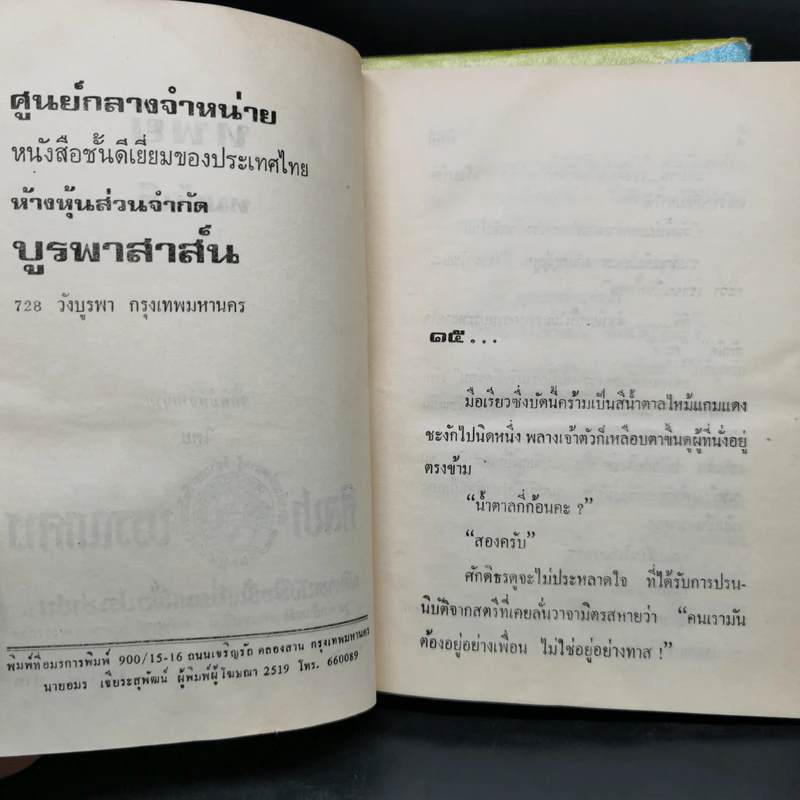 ศูนย์กลางจำหน่าย
หนังสือชั้นดีเยี่ยมของประเทศไทย
ห้างหุ้นส่วนจำกัด
บูรพาสาส์น
728 วังบูรพา กรุงเทพมหานคร
พิมพ์ที่อมรการพิมพ์ 900/15-16 ถนนเจริญรัถ คลองสาน กรุงเทพมหานคร
นายอมร เจียระสุพัฒน์ ผู้พิมพ์ผู้โฆษณา 2519 โทร. 660089
๑๕...
มือเรียวซึ่งบัดนี้คร้ามเป็นสีน้ำตาลไหม้แกมแดง
ชะงักไปนิดหนึ่ง พลางเจ้าตัวก็เหลือบตาขึ้นดูผู้ที่นั่งอยู่
ตรงข้าม
“น้ำตาลกี่ก้อนคะ ?”
“สองครับ”
ศักดิธรดูจะไม่ประหลาดใจ ที่ได้รับการปรน-
นิบัติจากสตรีที่เคยลั่นวาจามิตรสหายว่า “คนเรามัน
ต้องอยู่อย่างเพื่อน ไม่ใช่อยู่อย่างทาส !”